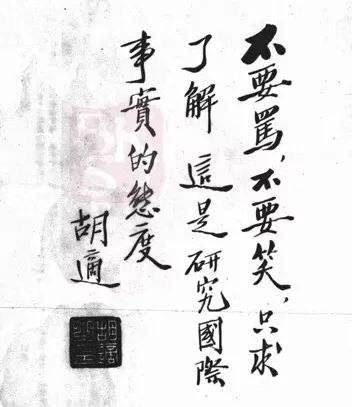 不要罵，不要笑，只求
了解 這是研究國際
事實的態度
胡適